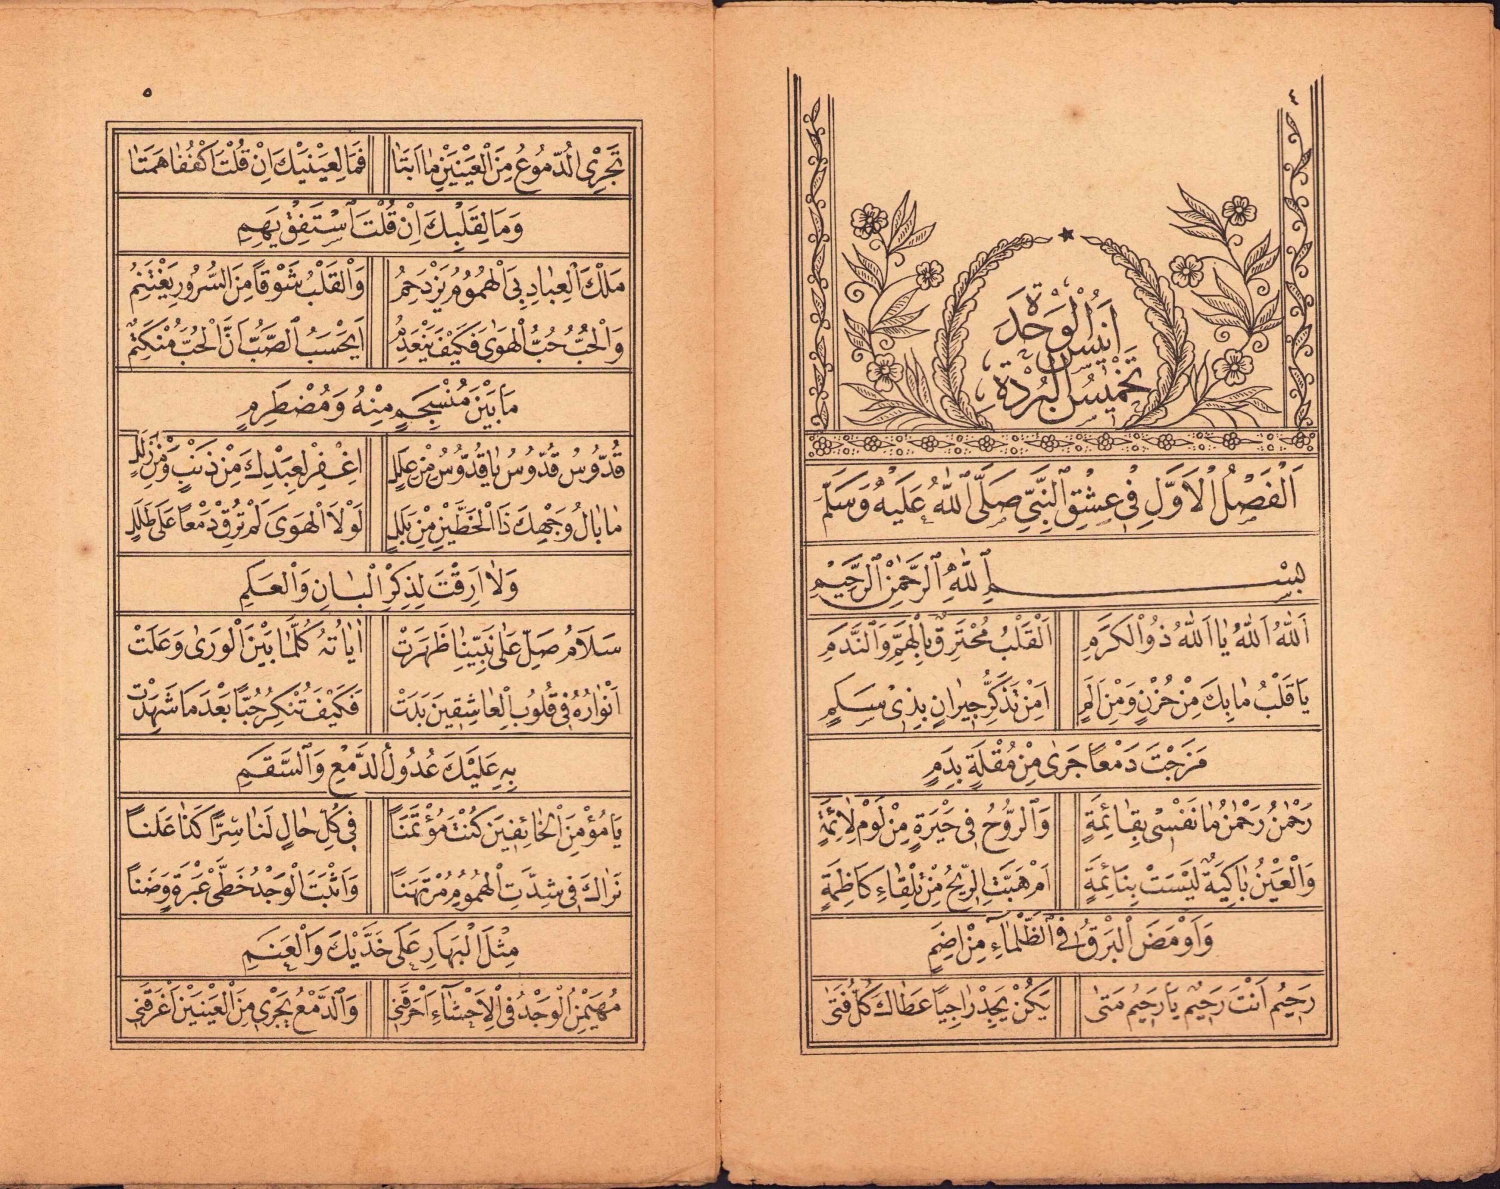 ٤
اَنِيسُ الْوَحْدَة
تَخْمِيسُ الْبُرْدَة
اَلْفَصْلُ الْاَوَّلِ فِى عِشْقِ النَّبِىِّ صَلَّى اللهُ عَلَيْهِ وَسَلَّمَ
بِسْمِ اللهِ الرَّحْمٰنِ الرَّحِيمِ
اَللهُ اَللهُ يَا اَللهُ ذُو الْكَرَمِ اَلْقَلْبُ مُحْتَرِقٌ بِالْهَمِّ وَالنَّدَمِ
يَا قَلْبُ مَا بِكَ مِنْ حُزْنٍ وَمِنْ اَلَمٍ اَمِنْ تَذَكُّرِ جِيرَانٍ بِذِى سَلَمٍ
مَزَجْتَ دَمْعًا جَرٰى مِنْ مُقْلَةٍ بِدَمٍ
رَحْمٰنُ رَحْمٰنُ مَا نَفْسِى بِقَائِمَةٍ وَالرُّوحُ فِى حَيْرَةٍ مِنْ لَوْمِ لَائِمَةٍ
وَالْعَيْنُ بَاكِيَةٌ لَيْسَتْ بِنَائِمَةٍ اَمْ هَبَّتِ الرِّيحُ مِنْ تِلْقَاءِ كَاظِمَةٍ
وَاَوْمَضَ الْبَرْقُ فِى الظَّلْمَاءِ مِنْ اِضَمٍ
رَحِيمُ اَنْتَ رَحِيمٌ يَا رَحِيمُ مَتٰى يَكُنْ يَجِدْ رَاجِيًا عَطَاكَ كُلُّ فَتٰى
٥
تَجْرِى الدُّمُوعُ مِنَ الْعَيْنَيْنِ مَا اَبَتَا فَمَا لِعَيْنَيْكَ اِنْ قُلْتَ اكْفُفَا هَمَتَا
وَمَا لِقَلْبِكَ اِنْ قُلْتَ اسْتَفِقْ يَهِمِ
مَلْكَ الْعِبَادِ بِىَ الْهُمُومُ يَزْدَحِمُ وَالْقَلْبُ شَوْقًا مِنَ السُّرُورِ يَغْتَنِمُ
وَالْحُبُّ حُبُّ الْهَوٰى فَكَيْفَ يَنْعَدِمُ اَيَحْسَبُ الصَّبُّ اَنَّ الْحُبَّ مُنْكَتِمٌ
مَا بَيْنَ مُنْسَجِمٍ مِنْهُ وَمُضْطَرِمٍ
قُدُّوسُ قُدُّوسُ يَا قُدُّوسُ مِنْ عِلَلٍ اِغْفِرْ لِعَبْدِكَ مِنْ ذَنْبٍ وَمِنْ زَلَلٍ
مَا بَالُ وَجْهِكَ ذَا الْخَطَّيْنِ مِنْ بَلَلٍ لَوْلَا الْهَوٰى لَمْ تُرِقْ دَمْعًا عَلٰى طَلَلٍ
وَلَا اَرِقْتَ لِذِكْرِ الْبَانِ وَالْعَلَمِ
سَلَامُ صَلِّ عَلٰى نَبِيِّنَا ظَهَرَتْ اٰيَاتُهُ كُلَّمَا بَيْنَ الْوَرٰى وَعَلَتْ
اَنْوَارُهُ فِى قُلُوبِ الْعَاشِقِينَ بَدَتْ فَكَيْفَ تُنْكِرُ حُبًّا بَعْدَ مَا شَهِدَتْ
بِهِ عَلَيْكَ عُدُولُ الدَّمْعِ وَالسَّقَمِ
يَا مُؤْمِنَ الْخَائِفِينَ كُنْتَ مُؤْتَمَنًا فِى كُلِّ حَالٍ لَنَا سِرًّا كَذَا عَلَنًا
نَرَاكَ فِى شِدَّتِ الْهُمُومِ مُرْتَهَنًا وَاَثْبَتَ الْوَجْدُ خَطَّىْ عَبْرَةٍ وَضَنًا
مِثْلَ الْبَهَارِ عَلٰى خَدَّيْكَ وَالْعَنَمِ
مُهَيْمِنُ الْوَجْدُ فِى الْاَحْشَاءِ اَحْرَقَنِى وَالدَّمْعُ يَجْرِى مِنَ الْعَيْنَيْنِ اَغْرَقَنِى